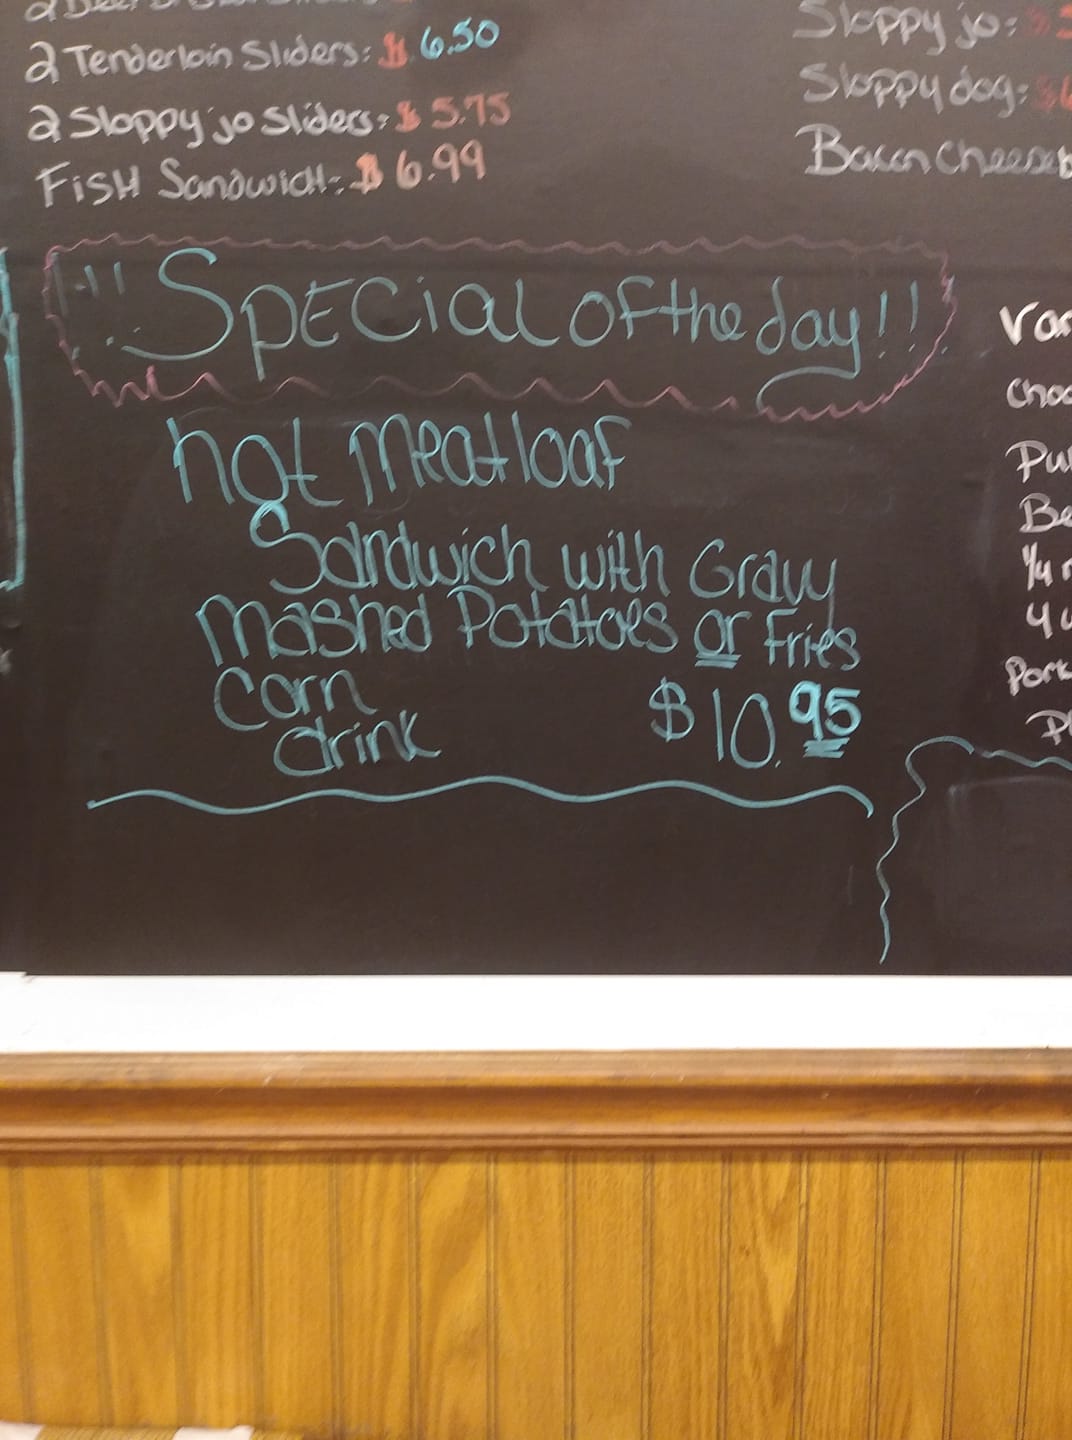 2 Tenderloin Sliders: $ 6.50
2 Sloppy jo Sliders: $ 5.75
FISH Sandwich: $ 6.99
Sloppy jo: $
Sloppy dog: $
Bacon Cheeseb
!! SPECial of the day!!
hot meatloaf
Sandwich with Gravy
mashed Potatoes or Fries
Corn
drink $10.95
Choo
Pul
Be
1/4
4
Pork